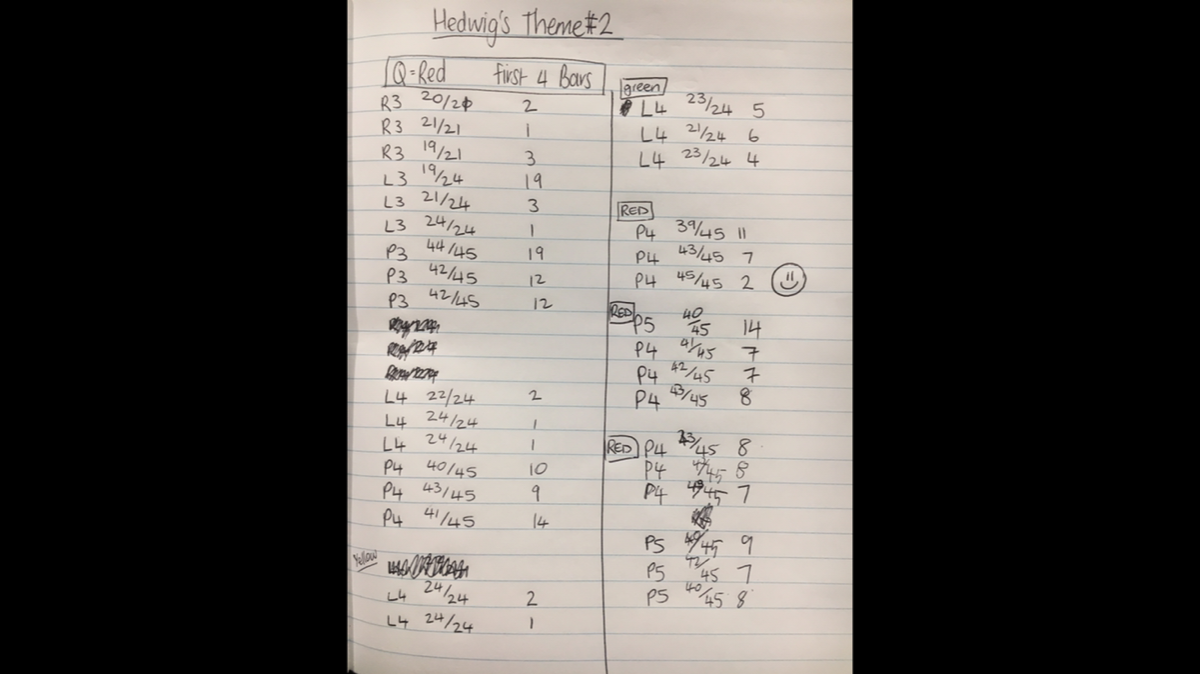 Hedwig's Theme #2
Q=Red First 4 Bars
R3 20/21 2
R3 21/21 1
R3 19/21 3
L3 19/24 19
L3 21/24 3
L3 24/24 1
P3 44/45 19
P3 42/45 12
P3 42/45 12
L4 22/24 2
L4 24/24 1
L4 24/24 1
P4 40/45 10
P4 43/45 9
P4 41/45 14
Yellow
L4 24/24 2
L4 24/24 1
green
L4 23/24 5
L4 21/24 6
L4 23/24 4
RED
P4 39/45 11
P4 43/45 7
P4 45/45 2
RED P5 40/45 14
P4 41/45 7
P4 42/45 7
P4 43/45 8
RED P4 43/45 8
P4 /45 8
P4 /45 7
P5 /45 9
P5 42/45 7
P5 40/45 8